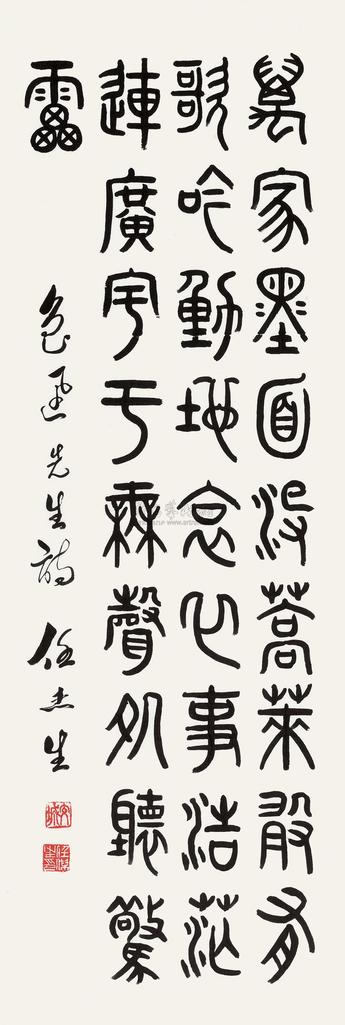 萬家墨面沒蒿萊敢有
歌吟動地哀心事浩茫
連廣宇于無聲処聽驚
雷
魯迅先生詩 任杰生